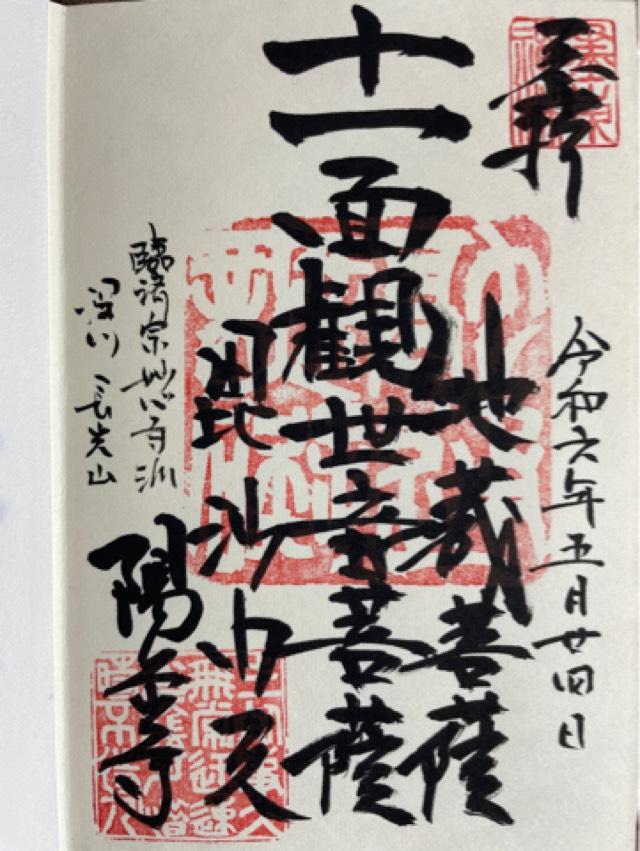 奉拝
令和六年五月廿四日
地蔵菩薩
十一面観世音菩薩
毘沙門天
臨済宗妙心寺派
深川 長光山
陽岳寺